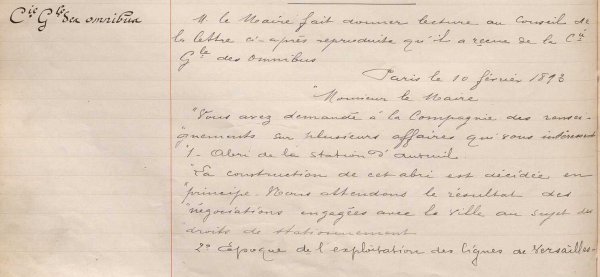 Cie Gle des omnibus
M. le Maire fait donner lecture au Conseil de
la lettre ci-après reproduite qu'il a reçue de la Cie
Gle des Omnibus
Paris le 10 février 1893
"Monsieur le Maire
"Vous avez demandé à la Compagnie des rensei-
"gnements sur plusieurs affaires qui vous intéressent
"1- Abri de la station d'Auteuil
"La construction de cet abri est décidée en
"principe. Nous attendons le résultat des
"négociations engagées avec la Ville au sujet des
"droits de stationnement
"2° Époque de l'exploitation des lignes de Versailles-